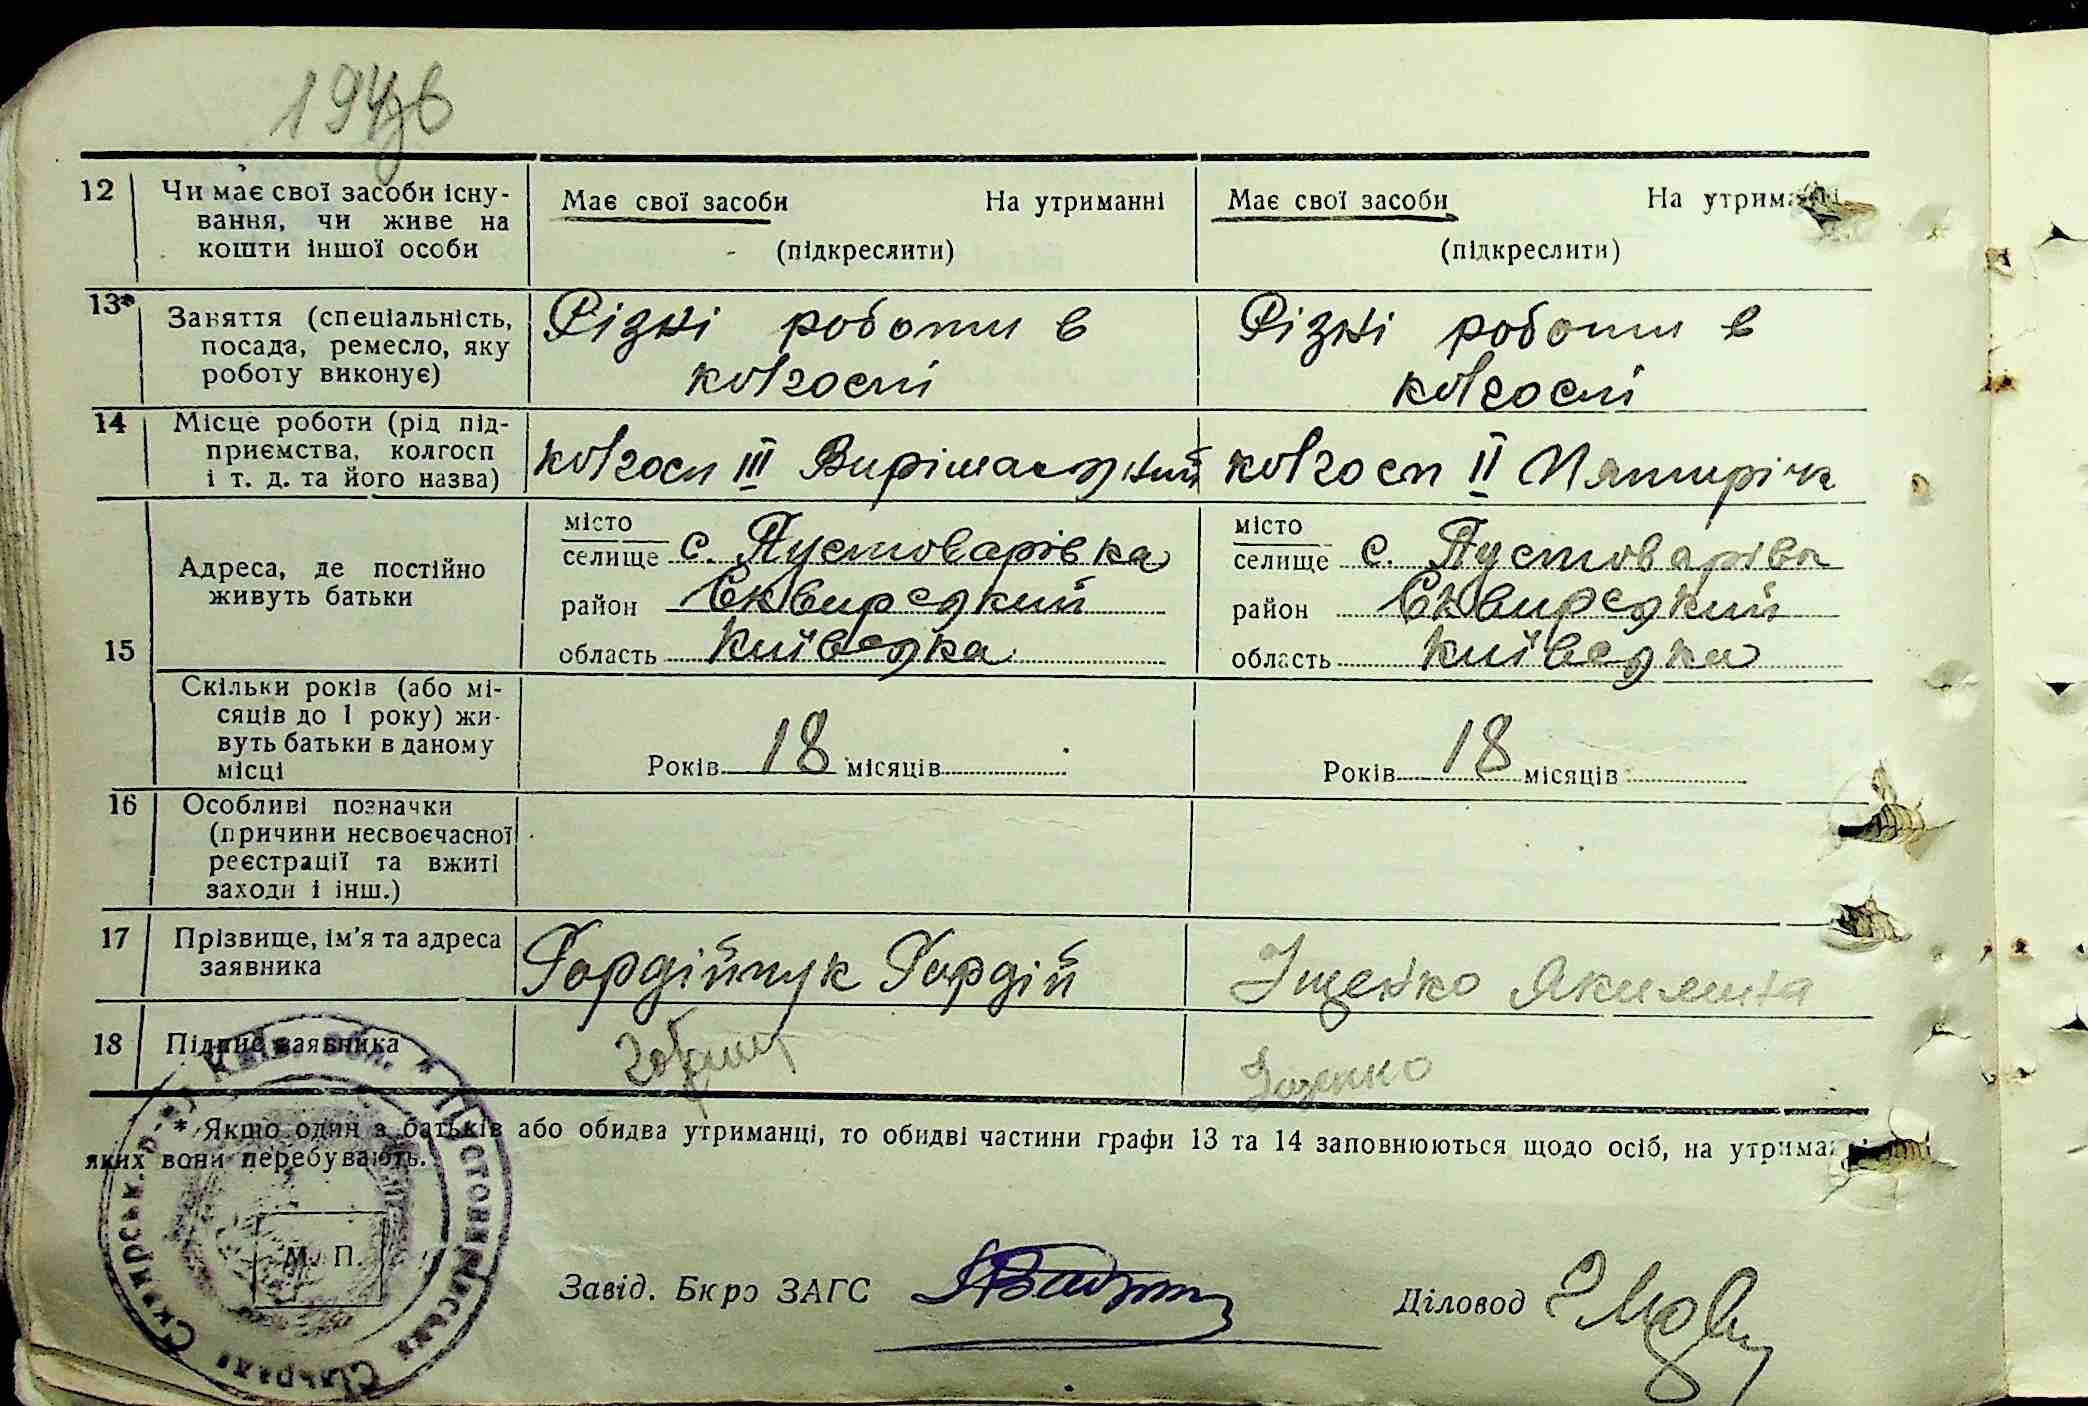 12 Чи має свої засоби існу-
вання, чи живе на
кошти іншої особи
Має свої засоби На утриманні
(підкреслити)
Має свої засоби На утрим
(підкреслити)
13* Заняття (спеціальність,
посада, ремесло, яку
роботу виконує)
Різні роботи в
колгоспі
Різні роботи в
колгоспі
14 Місце роботи (рід під-
приємства, колгосп
і т. д. та його назва)
колгосп III Вирішальний
колгосп II Пятиріча
15 Адреса, де постійно
живуть батьки
місто
селище с. Пустоварівка
район Сквирський
область Київська
місто
селище с. Пустоварівка
район Сквирський
область Київська
Скільки років (або мі-
сяців до 1 року) жи-
вуть батьки в даному
місці
Років 18 місяців
Років 18 місяців
16 Особливі позначки
(причини несвоєчасної
реєстрації та вжиті
заходи і інш.)
17 Прізвище, ім'я та адреса
заявника
Гордійчук Гордій
Іщенко Якилина
18 Підпис заявника
Іщенко
* Якщо один з батьків або обидва утриманці, то обидві частини графи 13 та 14 заповнюються щодо осіб, на утрима
яких вони перебувають.
М. П.
Завід. Бюро ЗАГС
Діловод